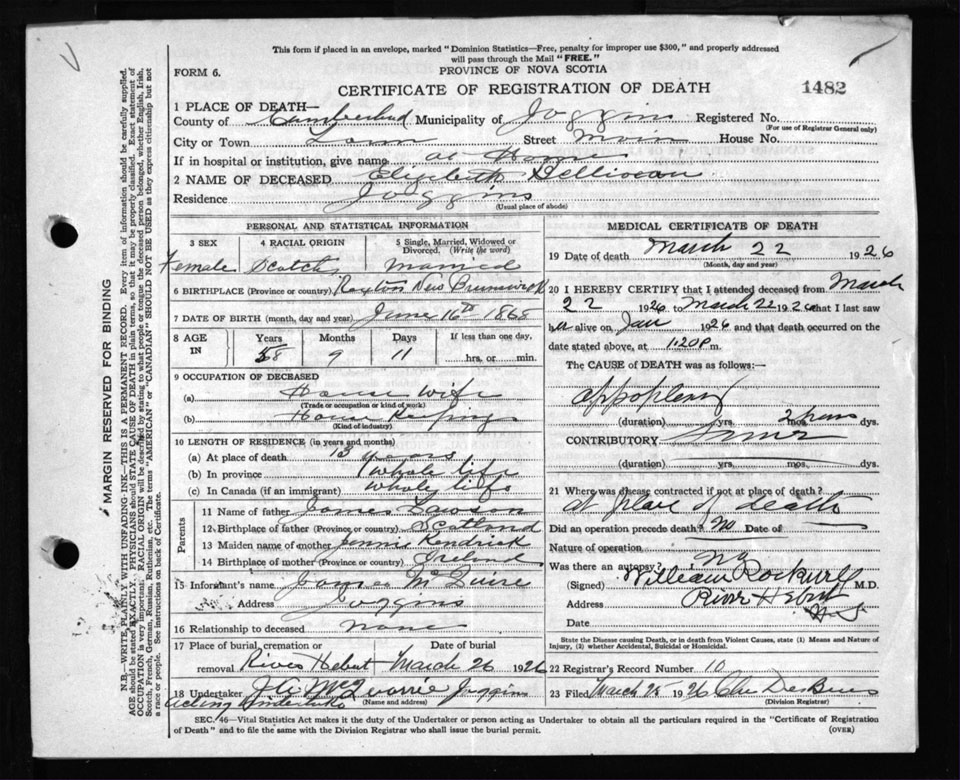 This form if placed in an envelope, marked "Dominion Statistics—Free, penalty for improper use $300," and properly addressed
will pass through the Mail "FREE."
FORM 6.
PROVINCE OF NOVA SCOTIA
CERTIFICATE OF REGISTRATION OF DEATH
1482
1 PLACE OF DEATH—
County of Cumberland Municipality of Joggins Registered No.
(For use of Registrar General only)
City or Town Street Main House No.
If in hospital or institution, give name at Home
2 NAME OF DECEASED Elizabeth
Residence Joggins
(Usual place of abode)
PERSONAL AND STATISTICAL INFORMATION
3 SEX 4 RACIAL ORIGIN 5 Single, Married, Widowed or
Divorced. (Write the word)
Female Scotch Married
6 BIRTHPLACE (Province or country) New Brunswick
7 DATE OF BIRTH (month, day and year) June 16th 1868
8 AGE IN Years Months Days If less than one day,
58 9 11 hrs. or min.
9 OCCUPATION OF DECEASED
(a) House wife
(Trade or occupation or kind of work)
(b) House Keeping
(Kind of industry)
10 LENGTH OF RESIDENCE (in years and months)
(a) At place of death 13 years
(b) In province whole life
(c) In Canada (if an immigrant) whole life
Parents
11 Name of father James Lawson
12 Birthplace of father (Province or country) Scotland
13 Maiden name of mother Jennie Kendrick
14 Birthplace of mother (Province or country) Ireland
15 Informant's name James McGuire
Address Joggins
16 Relationship to deceased none
17 Place of burial, cremation or Date of burial
removal River Hebert March 26 1926
18 Undertaker Joggins
acting Undertaker (Name and address)
MEDICAL CERTIFICATE OF DEATH
19 Date of death March 22 1926
(Month, day and year)
20 I HEREBY CERTIFY that I attended deceased from March
22 1926 to March 22 1926 that I last saw
alive on Jan 1926 and that death occurred on
date stated above, at 1:20 P.m.
The CAUSE OF DEATH was as follows:
(duration) yrs. mos. dys.
CONTRIBUTORY
(duration) yrs. mos. dys.
21 Where was disease contracted if not at place of death?
at place of death
Did an operation precede death? No Date of
Nature of operation
Was there an autopsy? No
(Signed) William Rockwell M.D.
Address River Hebert
N.S.
Date
State the Disease causing Death, or in death from Violent Causes, state (1) Means and Nature of
Injury, (2) whether Accidental, Suicidal or Homicidal.
22 Registrar's Record Number 10
23 Filed March 25 1926
(Division Registrar)
SEC. 46—Vital Statistics Act makes it the duty of the Undertaker or person acting as Undertaker to obtain all the particulars required in the "Certificate of Registration
of Death" and to file the same with the Division Registrar who shall issue the burial permit. (OVER)
MARGIN RESERVED FOR BINDING
N.B.—WRITE PLAINLY WITH UNFADING INK—THIS IS A PERMANENT RECORD. Every item of information should be carefully supplied.
AGE should be stated EXACTLY. PHYSICIANS should STATE CAUSE OF DEATH in plain terms, so that it may be properly classified. Exact statement of
OCCUPATION is very important. RACIAL ORIGIN will be described by stating to what people or tongue the deceased person belonged, whether English, Irish,
Scotch, French, German, Russian, Ruthenian, etc. The terms "AMERICAN" or "CANADIAN" SHOULD NOT BE USED as they express citizenship but not
a race or people. See instructions on back of Certificate.